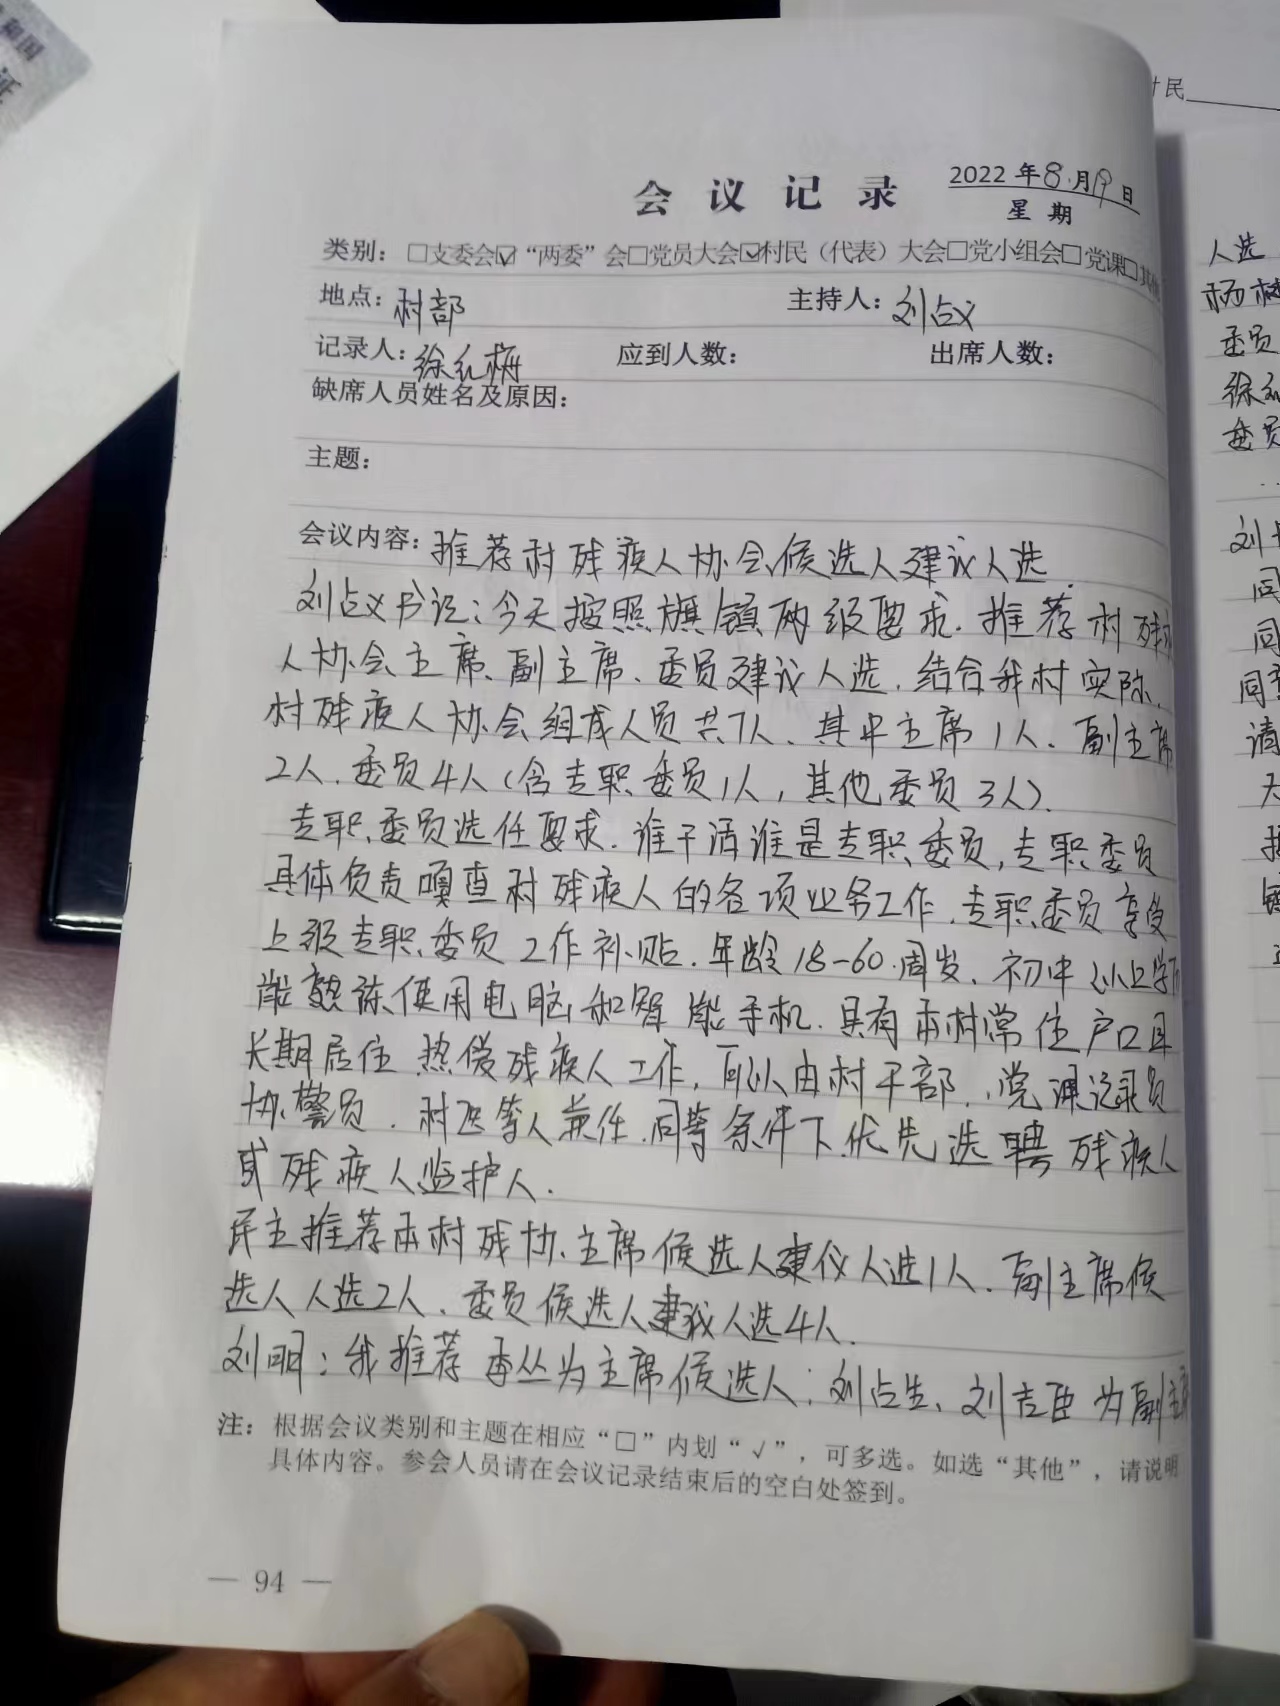 会议记录
2022年8月19日
星期
类别：□支委会☑“两委”会□党员大会☑村民（代表）大会□党小组会□党课□其他
地点：村部 主持人：刘占义
记录人：徐红梅 应到人数： 出席人数：
缺席人员姓名及原因：
主题：
会议内容：推荐村残疾人协会候选人建议人选.
刘占义书记：今天按照旗镇两级要求.推荐村残疾
人协会主席、副主席、委员建议人选.结合我村实际.
村残疾人协会组成人员共7人、其中主席1人.副主席
2人.委员4人(含专职委员1人，其他委员3人).
专职委员选任要求.谁干活谁是专职委员,专职委员
具体负责嘎查村残疾人的各项业务工作.专职委员享受
上级专职委员工作补贴.年龄18-60周岁、初中以上学历
能熟练使用电脑和智能手机.具有本村常住户口且
长期居住 热爱残疾人工作，可以由村干部.党建记录员
协警员.村医等人兼任.同等条件下优先选聘残疾人
或残疾人监护人.
民主推荐本村残协主席候选人建议人选1人.副主席候
选人人选2人、委员候选人建议人选4人.
刘明：我推荐 丛为主席候选人；刘占生、刘吉臣为副主席
注：根据会议类别和主题在相应“□”内划“√”，可多选。如选“其他”，请说明
具体内容。参会人员请在会议记录结束后的空白处签到。
— 94 —
村民
人选
杨树
委员
徐红
委员
刘
同
同
同意
请